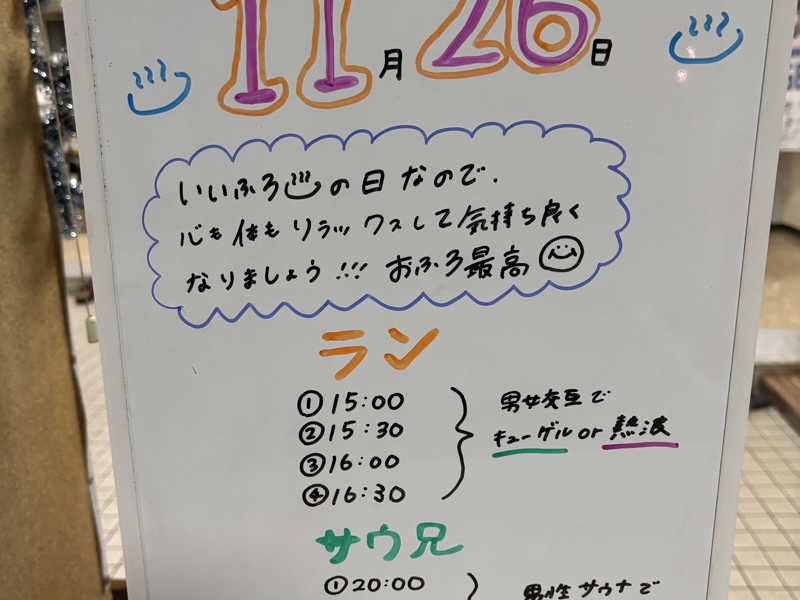 11月26日
いいふろ♨の日なので、
心も体もリラックスして気持ち良く
なりましょう!!! おふろ最高
ラン
①15:00
②15:30
③16:00
④16:30
男女交互で
キューゲル or 熱波
サウ兄
①20:00
男性サウナで